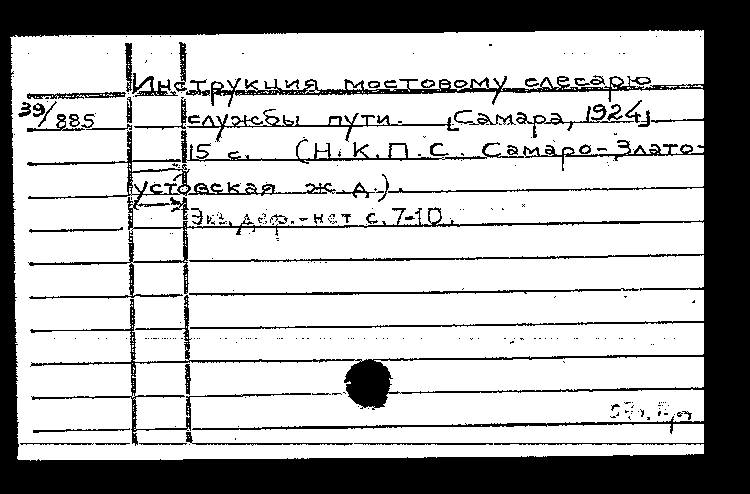 Инструкция мостовому слесарю
39/885 службы пути. [Самара, 1924].
15 с. (Н.К.П.С. Самаро-Злато-
устовская ж.д.).
Экз. деф.-нет с. 7-10.